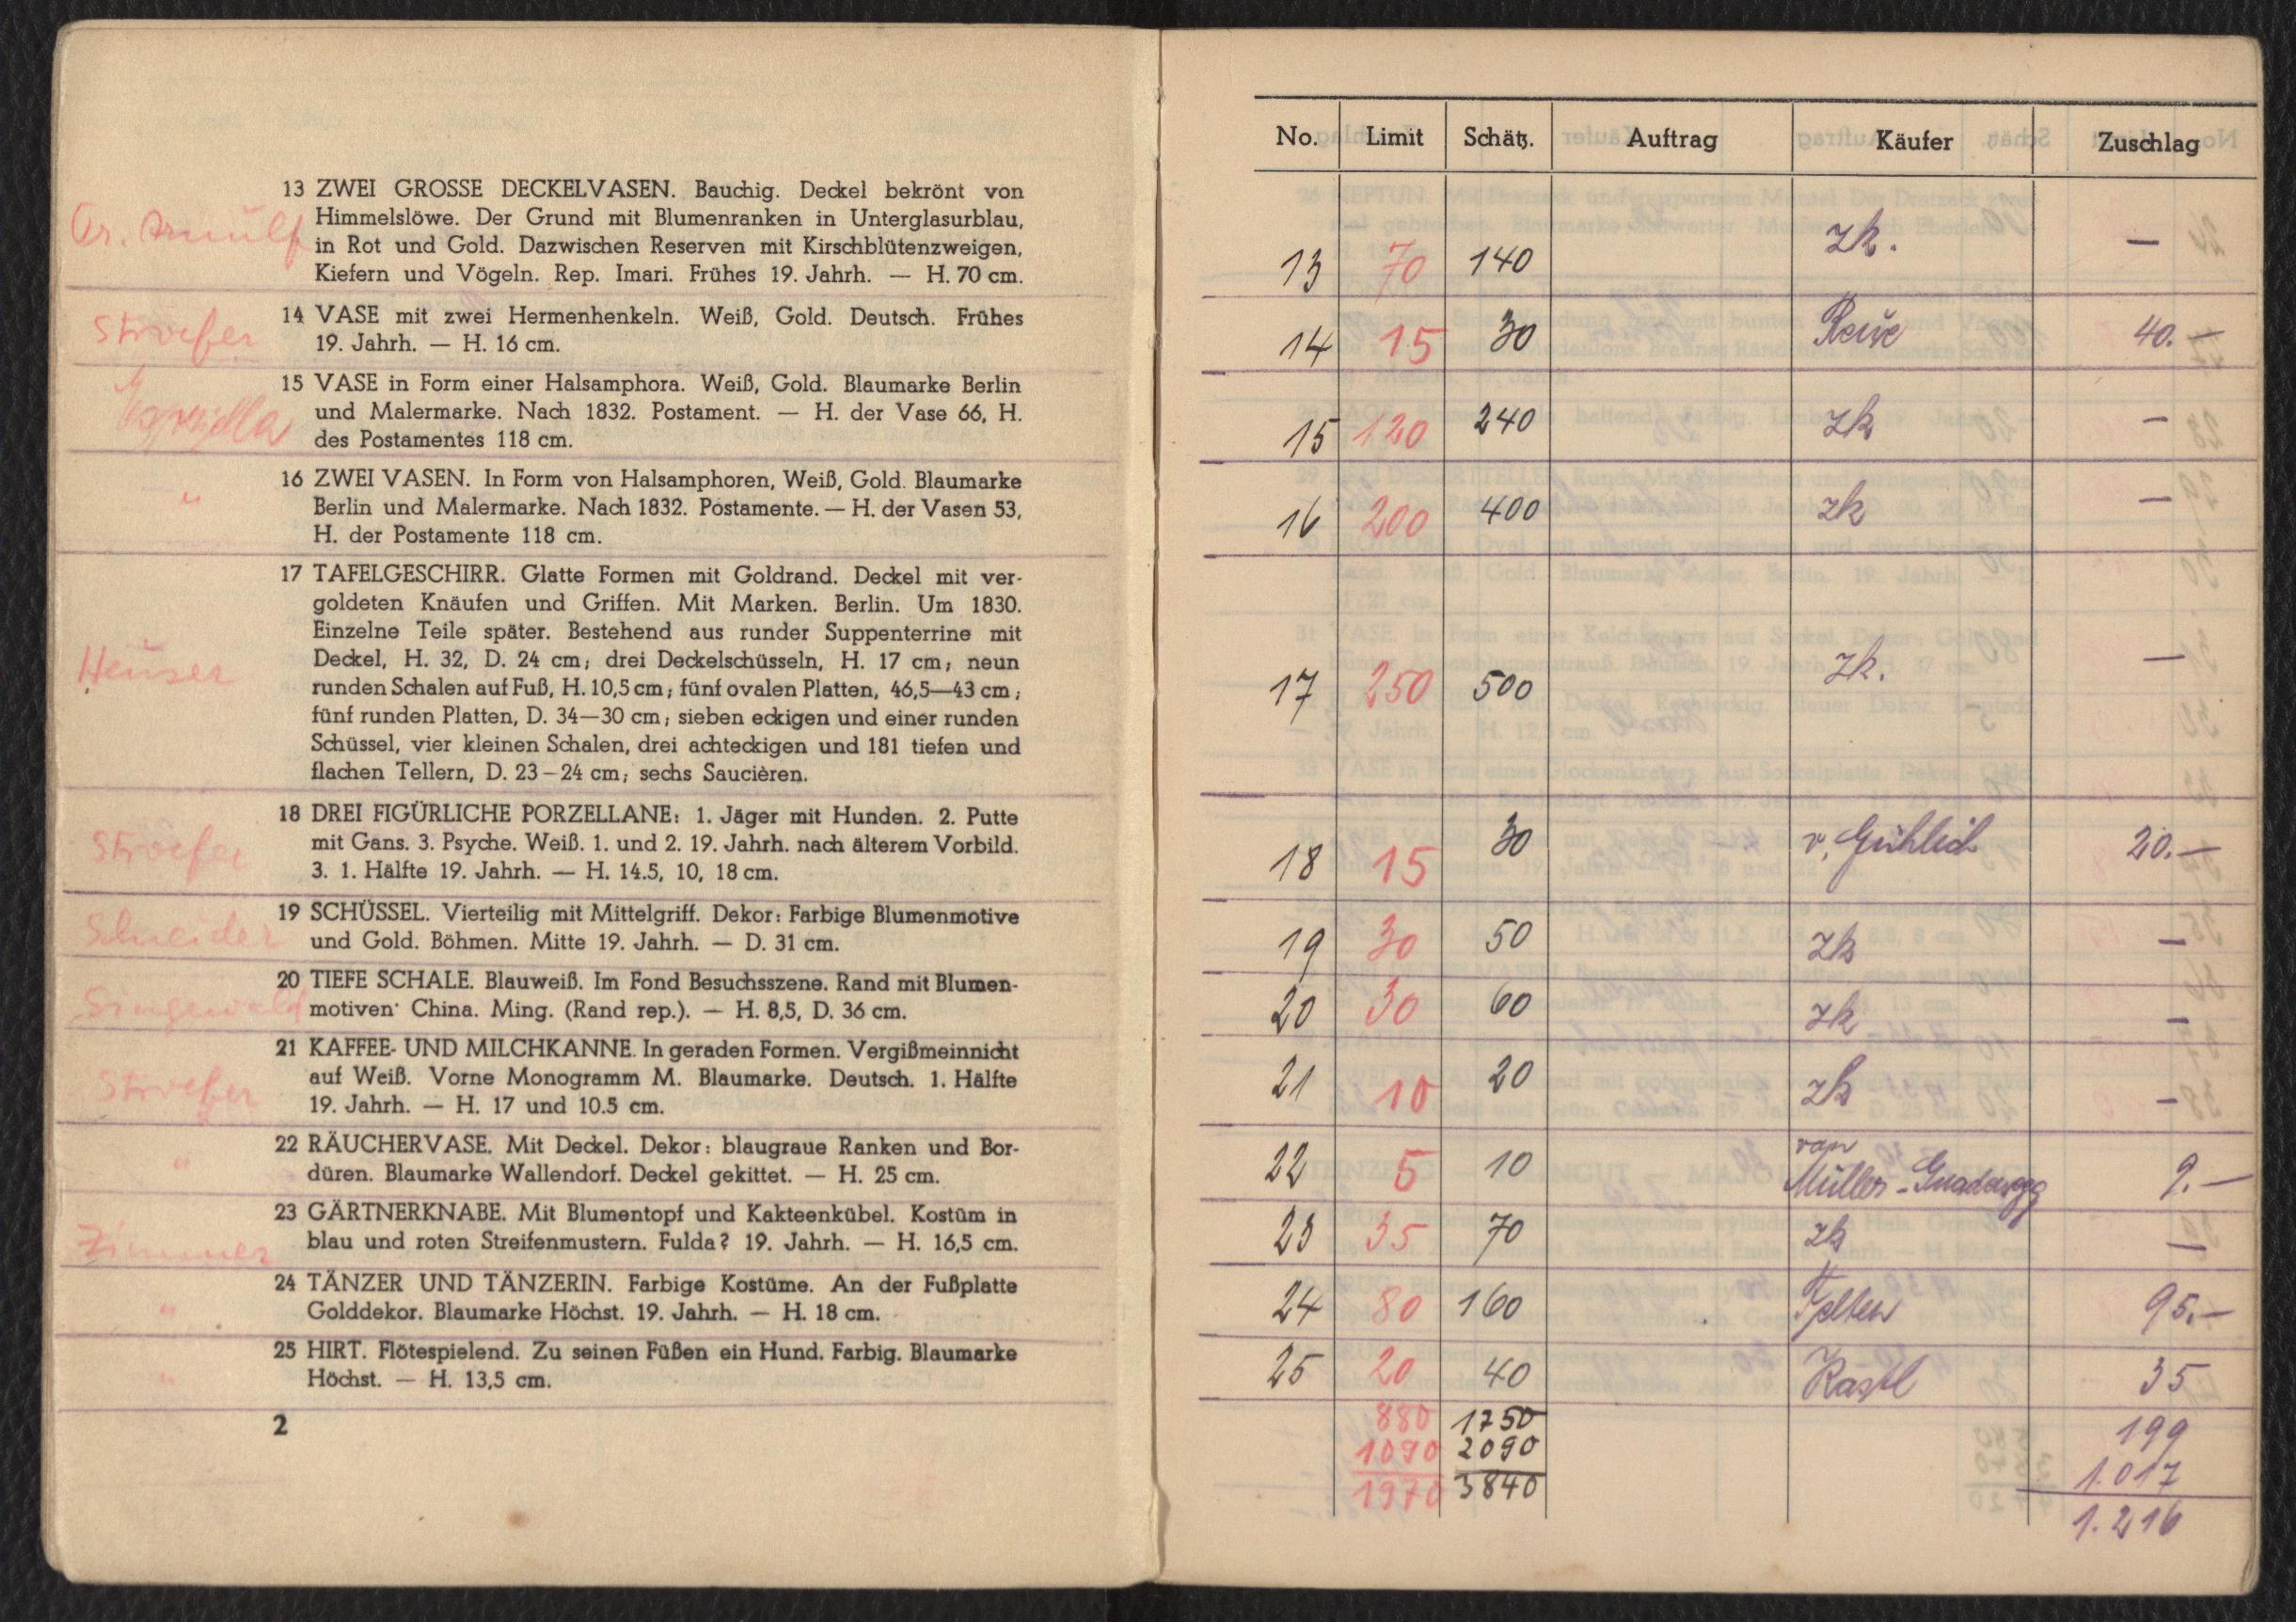 13 ZWEI GROSSE DECKELVASEN. Bauchig. Deckel bekrönt von
Himmelslöwe. Der Grund mit Blumenranken in Unterglasurblau,
in Rot und Gold. Dazwischen Reserven mit Kirschblütenzweigen,
Kiefern und Vögeln. Rep. Imari. Frühes 19. Jahrh. — H. 70 cm.
Stroefer
14 VASE mit zwei Hermenhenkeln. Weiß, Gold. Deutsch. Frühes
19. Jahrh. — H. 16 cm.
15 VASE in Form einer Halsamphora. Weiß, Gold. Blaumarke Berlin
und Malermarke. Nach 1832. Postament. — H. der Vase 66, H.
des Postamentes 118 cm.
"
16 ZWEI VASEN. In Form von Halsamphoren, Weiß, Gold. Blaumarke
Berlin und Malermarke. Nach 1832. Postamente. — H. der Vasen 53,
H. der Postamente 118 cm.
Heuser
17 TAFELGESCHIRR. Glatte Formen mit Goldrand. Deckel mit ver-
goldeten Knäufen und Griffen. Mit Marken. Berlin. Um 1830.
Einzelne Teile später. Bestehend aus runder Suppenterrine mit
Deckel, H. 32, D. 24 cm; drei Deckelschüsseln, H. 17 cm; neun
runden Schalen auf Fuß, H. 10,5 cm; fünf ovalen Platten, 46,5—43 cm;
fünf runden Platten, D. 34—30 cm; sieben eckigen und einer runden
Schüssel, vier kleinen Schalen, drei achteckigen und 181 tiefen und
flachen Tellern, D. 23–24 cm; sechs Saucièren.
Stroefer
18 DREI FIGÜRLICHE PORZELLANE: 1. Jäger mit Hunden. 2. Putte
mit Gans. 3. Psyche. Weiß. 1. und 2. 19. Jahrh. nach älterem Vorbild.
3. 1. Hälfte 19. Jahrh. — H. 14.5, 10, 18 cm.
Schneider
19 SCHÜSSEL. Vierteilig mit Mittelgriff. Dekor: Farbige Blumenmotive
und Gold. Böhmen. Mitte 19. Jahrh. — D. 31 cm.
Singewald
20 TIEFE SCHALE. Blauweiß. Im Fond Besuchsszene. Rand mit Blumen-
motiven· China. Ming. (Rand rep.). — H. 8,5, D. 36 cm.
Stroefer
21 KAFFEE- UND MILCHKANNE. In geraden Formen. Vergißmeinnicht
auf Weiß. Vorne Monogramm M. Blaumarke. Deutsch. 1. Hälfte
19. Jahrh. — H. 17 und 10.5 cm.
"
22 RÄUCHERVASE. Mit Deckel. Dekor: blaugraue Ranken und Bor-
düren. Blaumarke Wallendorf. Deckel gekittet. — H. 25 cm.
Zimmer
23 GÄRTNERKNABE. Mit Blumentopf und Kakteenkübel. Kostüm in
blau und roten Streifenmustern. Fulda? 19. Jahrh. — H. 16,5 cm.
"
24 TÄNZER UND TÄNZERIN. Farbige Kostüme. An der Fußplatte
Golddekor. Blaumarke Höchst. 19. Jahrh. — H. 18 cm.
"
25 HIRT. Flötespielend. Zu seinen Füßen ein Hund. Farbig. Blaumarke
Höchst. — H. 13,5 cm.
2
No. Limit Schätz. Auftrag Käufer Zuschlag
13 70 140 zk. —
14 15 30 40.—
15 120 240 zk —
16 200 400 zk —
17 250 500 zk. —
18 15 30 20.—
19 30 50 zk —
20 30 60 zk —
21 10 20 zk —
22 5 10 von Müller- 9.—
23 35 70 zk —
24 80 160 95.—
25 20 40 Kastl 35
880 1750 199
1090 2090 1.017
1970 3840 1.216